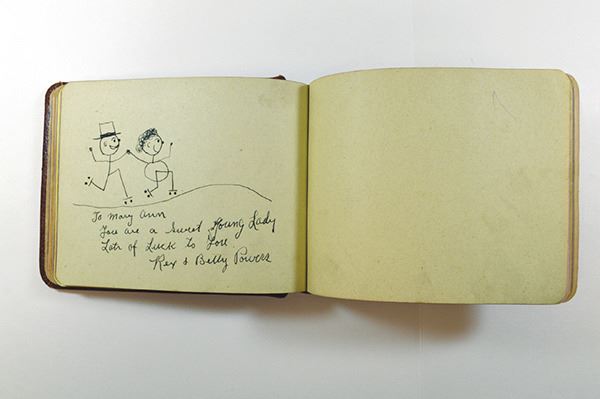 To Mary Ann
You are a Sweet Young Lady
Lots of Luck to You.
Rex & Betty Powers